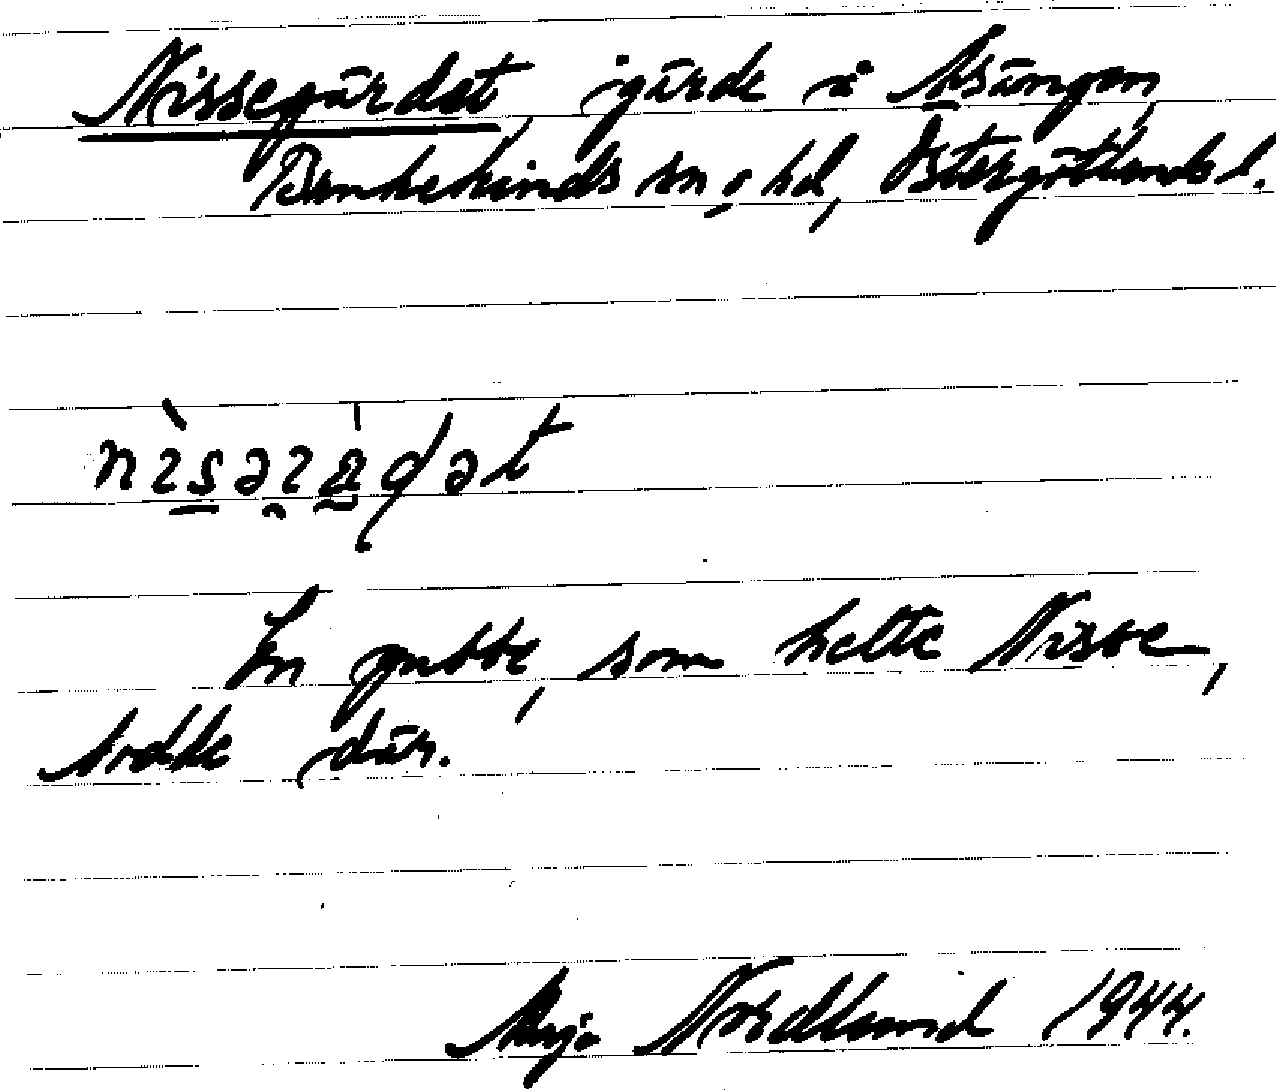 Nissegärdet, gärde å Åsängen,
Bankekinds sn o hd, Östergötlands l.
En gubbe, som hette Nisse,
bodde där.
Maja Nordlund 1944.